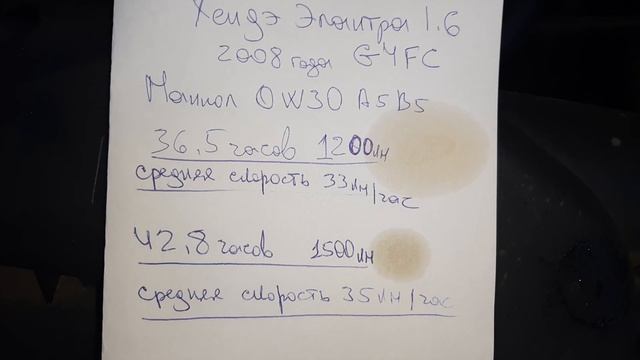 Хендэ Элантра 1.6
2008 года G4FC
Маннол 0W30 A5B5
36,5 часов 1200км
средняя скорость 33км/час
42,8 часов 1500км
средняя скорость 35км/час